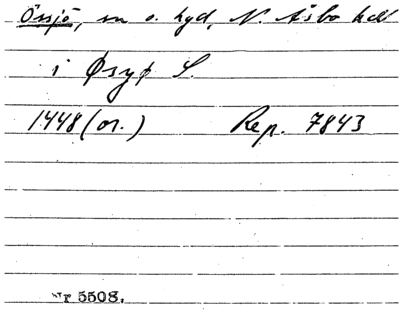 Össjö, sn o. hgd, N. Åsbo hd
i Øsyø S.
1448 (or.) Rep. 7843
Nr 5508.